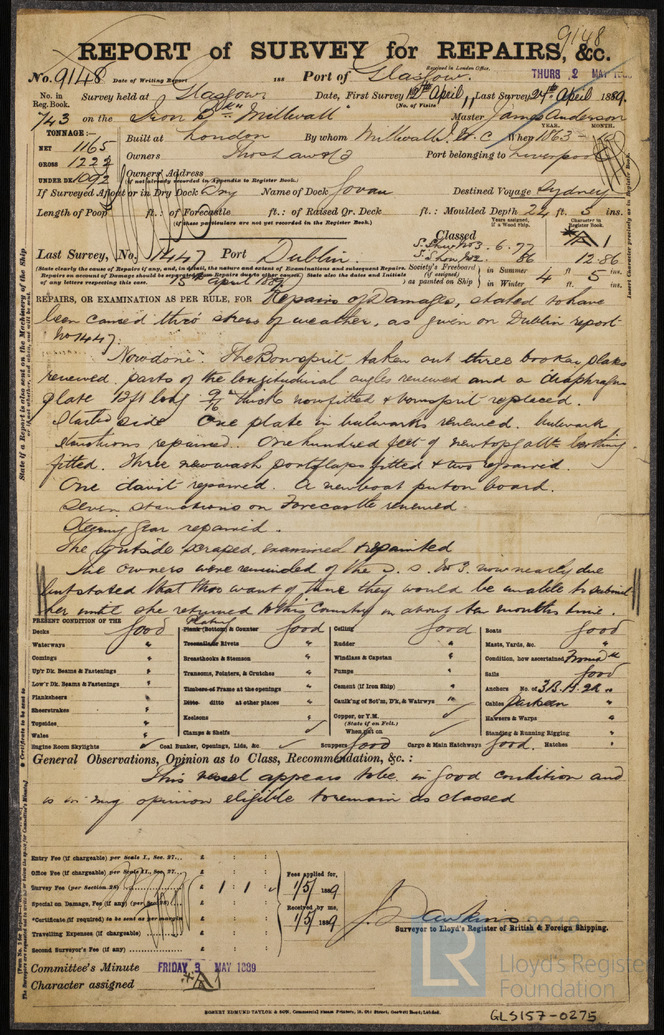 9148
REPORT of SURVEY for REPAIRS, &c.
Received in London Office.
No. 9148 Date of Writing Report 188 Port of Glasgow. THURS 2 MAY
No. in Reg. Book. Survey held at Glasgow Date, First Survey 12th April, Last Survey 24th April 1889.
(No. of Visits)
743 on the Iron Bk Millwall Master James Anderson
TONNAGE:— Built at London By whom Millwall Co When 1863
YEAR. MONTH.
NET 1165
GROSS 1222
UNDER DK 1092
Owners Port belonging to Liverpool
Owners' Address
(If not already recorded in Appendix to Register Book.)
If Surveyed Afloat or in Dry Dock Dry Name of Dock Govan Destined Voyage Sydney
Length of Poop ft.: of Forecastle ft.: of Raised Qr. Deck ft.: Moulded Depth 22 ft. 5 ins.
(If these particulars are not yet recorded in the Register Book.)
Classed
Last Survey, No. 1447 Port Dublin.
S. Shw No3. 6.77
S. Shw No2. 86 12.86
(State clearly the cause of Repairs if any, and, in detail, the nature and extent of Examinations and subsequent Repairs.
Society's Freeboard (if assigned) as painted on Ship in Summer 4 ft 5 ins.
in Winter ft. ins.
REPAIRS, OR EXAMINATION AS PER RULE, FOR Repairs of Damages, stated to have
been caused thro stress of weather, as given on Dublin report
No 1447.
Now done. The Bowsprit taken out three broken plates
renewed, parts of the longitudinal angles renewed and a diaphragm
plate 12ft long 9/16" thick now fitted & bowsprit replaced.
Starbd side One plate in bulwarks renewed. bulwark
stanchions repaired. One hundred feet of new topgallt
fitted. Three new wash portflaps fitted & two repaired.
One davit repaired. A new boat put on board.
Seven stanchions on Forecastle renewed.
Steering Gear repaired.
The outside scraped, examined & repainted
The owners were reminded of the S. S. No 3. now nearly due
but stated that thro want of time they would be unable to submit
her until she returned to this Country in about ten months time.
PRESENT CONDITION OF THE
Decks Good
Waterways "
Comings "
Up'r Dk. Beams & Fastenings "
Low'r Dk. Beams & Fastenings "
Planksheers
Sheerstrakes "
Topsides "
Wales "
Engine Room Skylights
Plating
Plank (Bottom) & Counter Good
Treenails or Rivets "
Breasthooks & Stemson "
Transoms, Pointers, & Crutches "
Timbers of Frame at the openings "
Ditto ditto at other places "
Keelsons "
Clamps & Shelfs
Coal Bunker, Openings, Lids, &c.
Ceiling Good
Rudder "
Windlass & Capstan "
Pumps "
Cement (if Iron Ship) "
Caulk'g of Bot'm, D'k, & Waterways
Copper, or Y.M.
(State if on Felt.)
When put on
Scuppers Good Cargo & Main Hatchways Good.
Boats Good
Masts, Yards, &c. "
Condition, how ascertained
Sails Good
Anchors No. of 3B. 1S. 2K "
Cables
Hawsers & Warps "
Standing & Running Rigging "
Hatches "
General Observations, Opinion as to Class, Recommendation, &c.:
This vessel appears to be in good condition and
is in my opinion eligible to remain as classed
Entry Fee (if chargeable) per Scale I., Sec. 27... £ : :
Office Fee (if chargeable) per Scale II., Sec. 27... £ : :
Survey Fee (per Section 28) £ 1 : 1 :
Special on Damage, Fee (if any) (per Sec. 28) £ : :
*Certificate (if required) to be sent as per margin £ : :
Travelling Expenses (if chargeable) £ : :
Second Surveyor's Fee (if any) £ : :
Fees applied for,
1/5/ 1889
Received by me,
1/5/ 1889
Surveyor to Lloyd's Register of British & Foreign Shipping.
Committee's Minute FRIDAY 3 MAY 1889
Character assigned
LR Lloyd's Register Foundation
2019
GLS157-0275